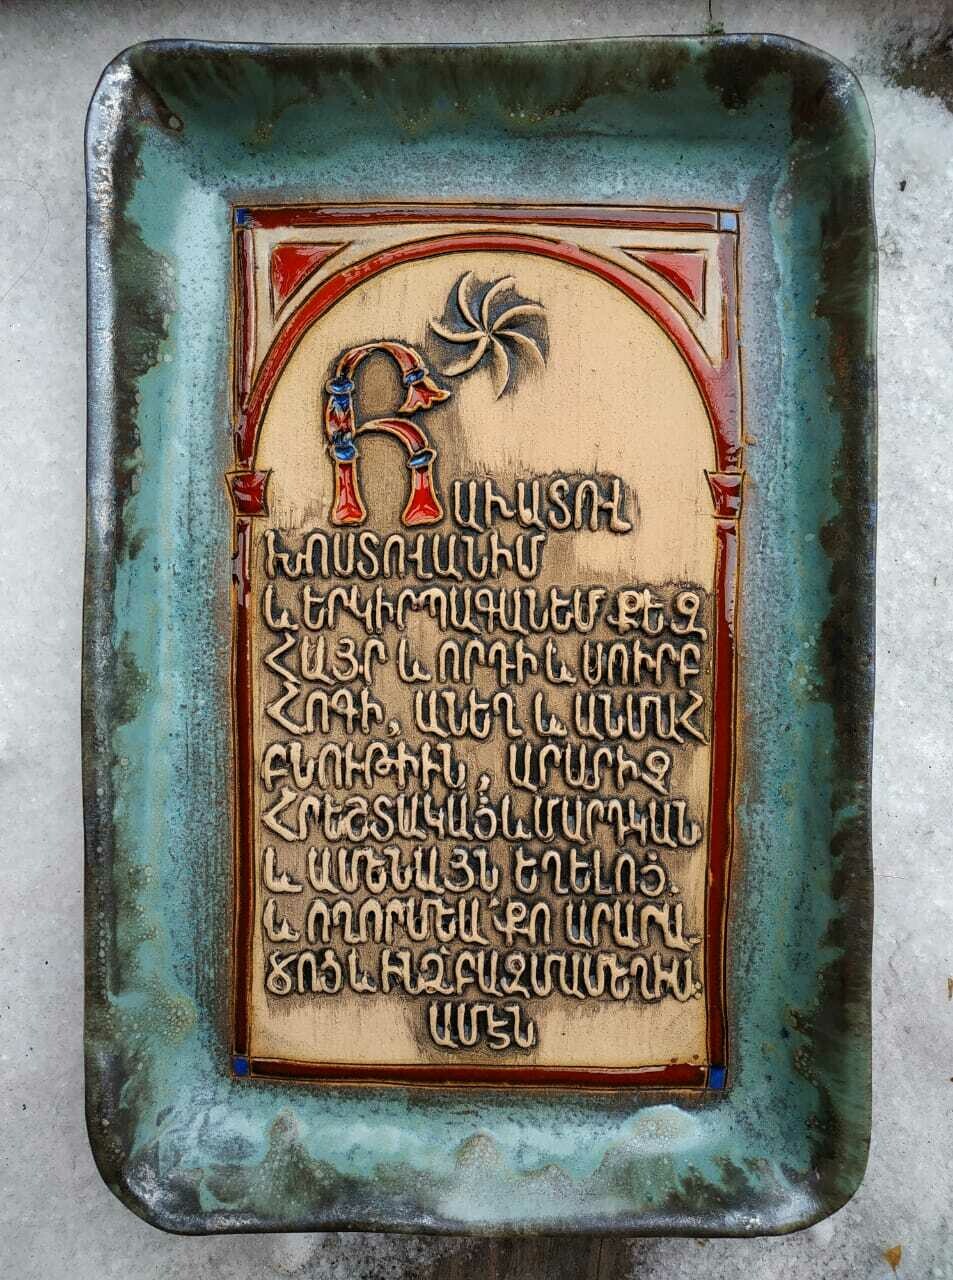 ՀԱՒԱՏՈՎ
ԽՈՍՏՈՎԱՆԻՄ
և ԵՐԿԻՐՊԱԳԱՆԵՄ ՔԵԶ
ՀԱՅՐ և ՈՐԴԻ և ՍՈՒՐԲ
ՀՈԳԻ, ԱՆԵՂ և ԱՆՄԱՀ
ԲՆՈՒԹԻՒՆ, ԱՐԱՐԻՉ
ՀՐԵՇՏԱԿԱՑ և ՄԱՐԴԿԱՆ
և ԱՄԵՆԱՅՆ ԵՂԵԼՈՑ.
և ՈՂՈՐՄԵԱ՛ ՔՈ ԱՐԱՐԱ-
ԾՈՑ և ԻՆՁ ԲԱԶՄԱՄԵՂԻՍ.
ԱՄԷՆ